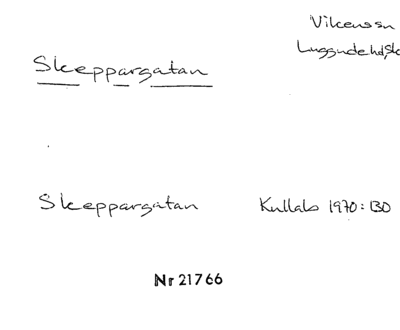 Vikenssn
Luggude hd, Sk
Skeppargatan
Skeppargatan Kullabo 1970:130
Nr 21766